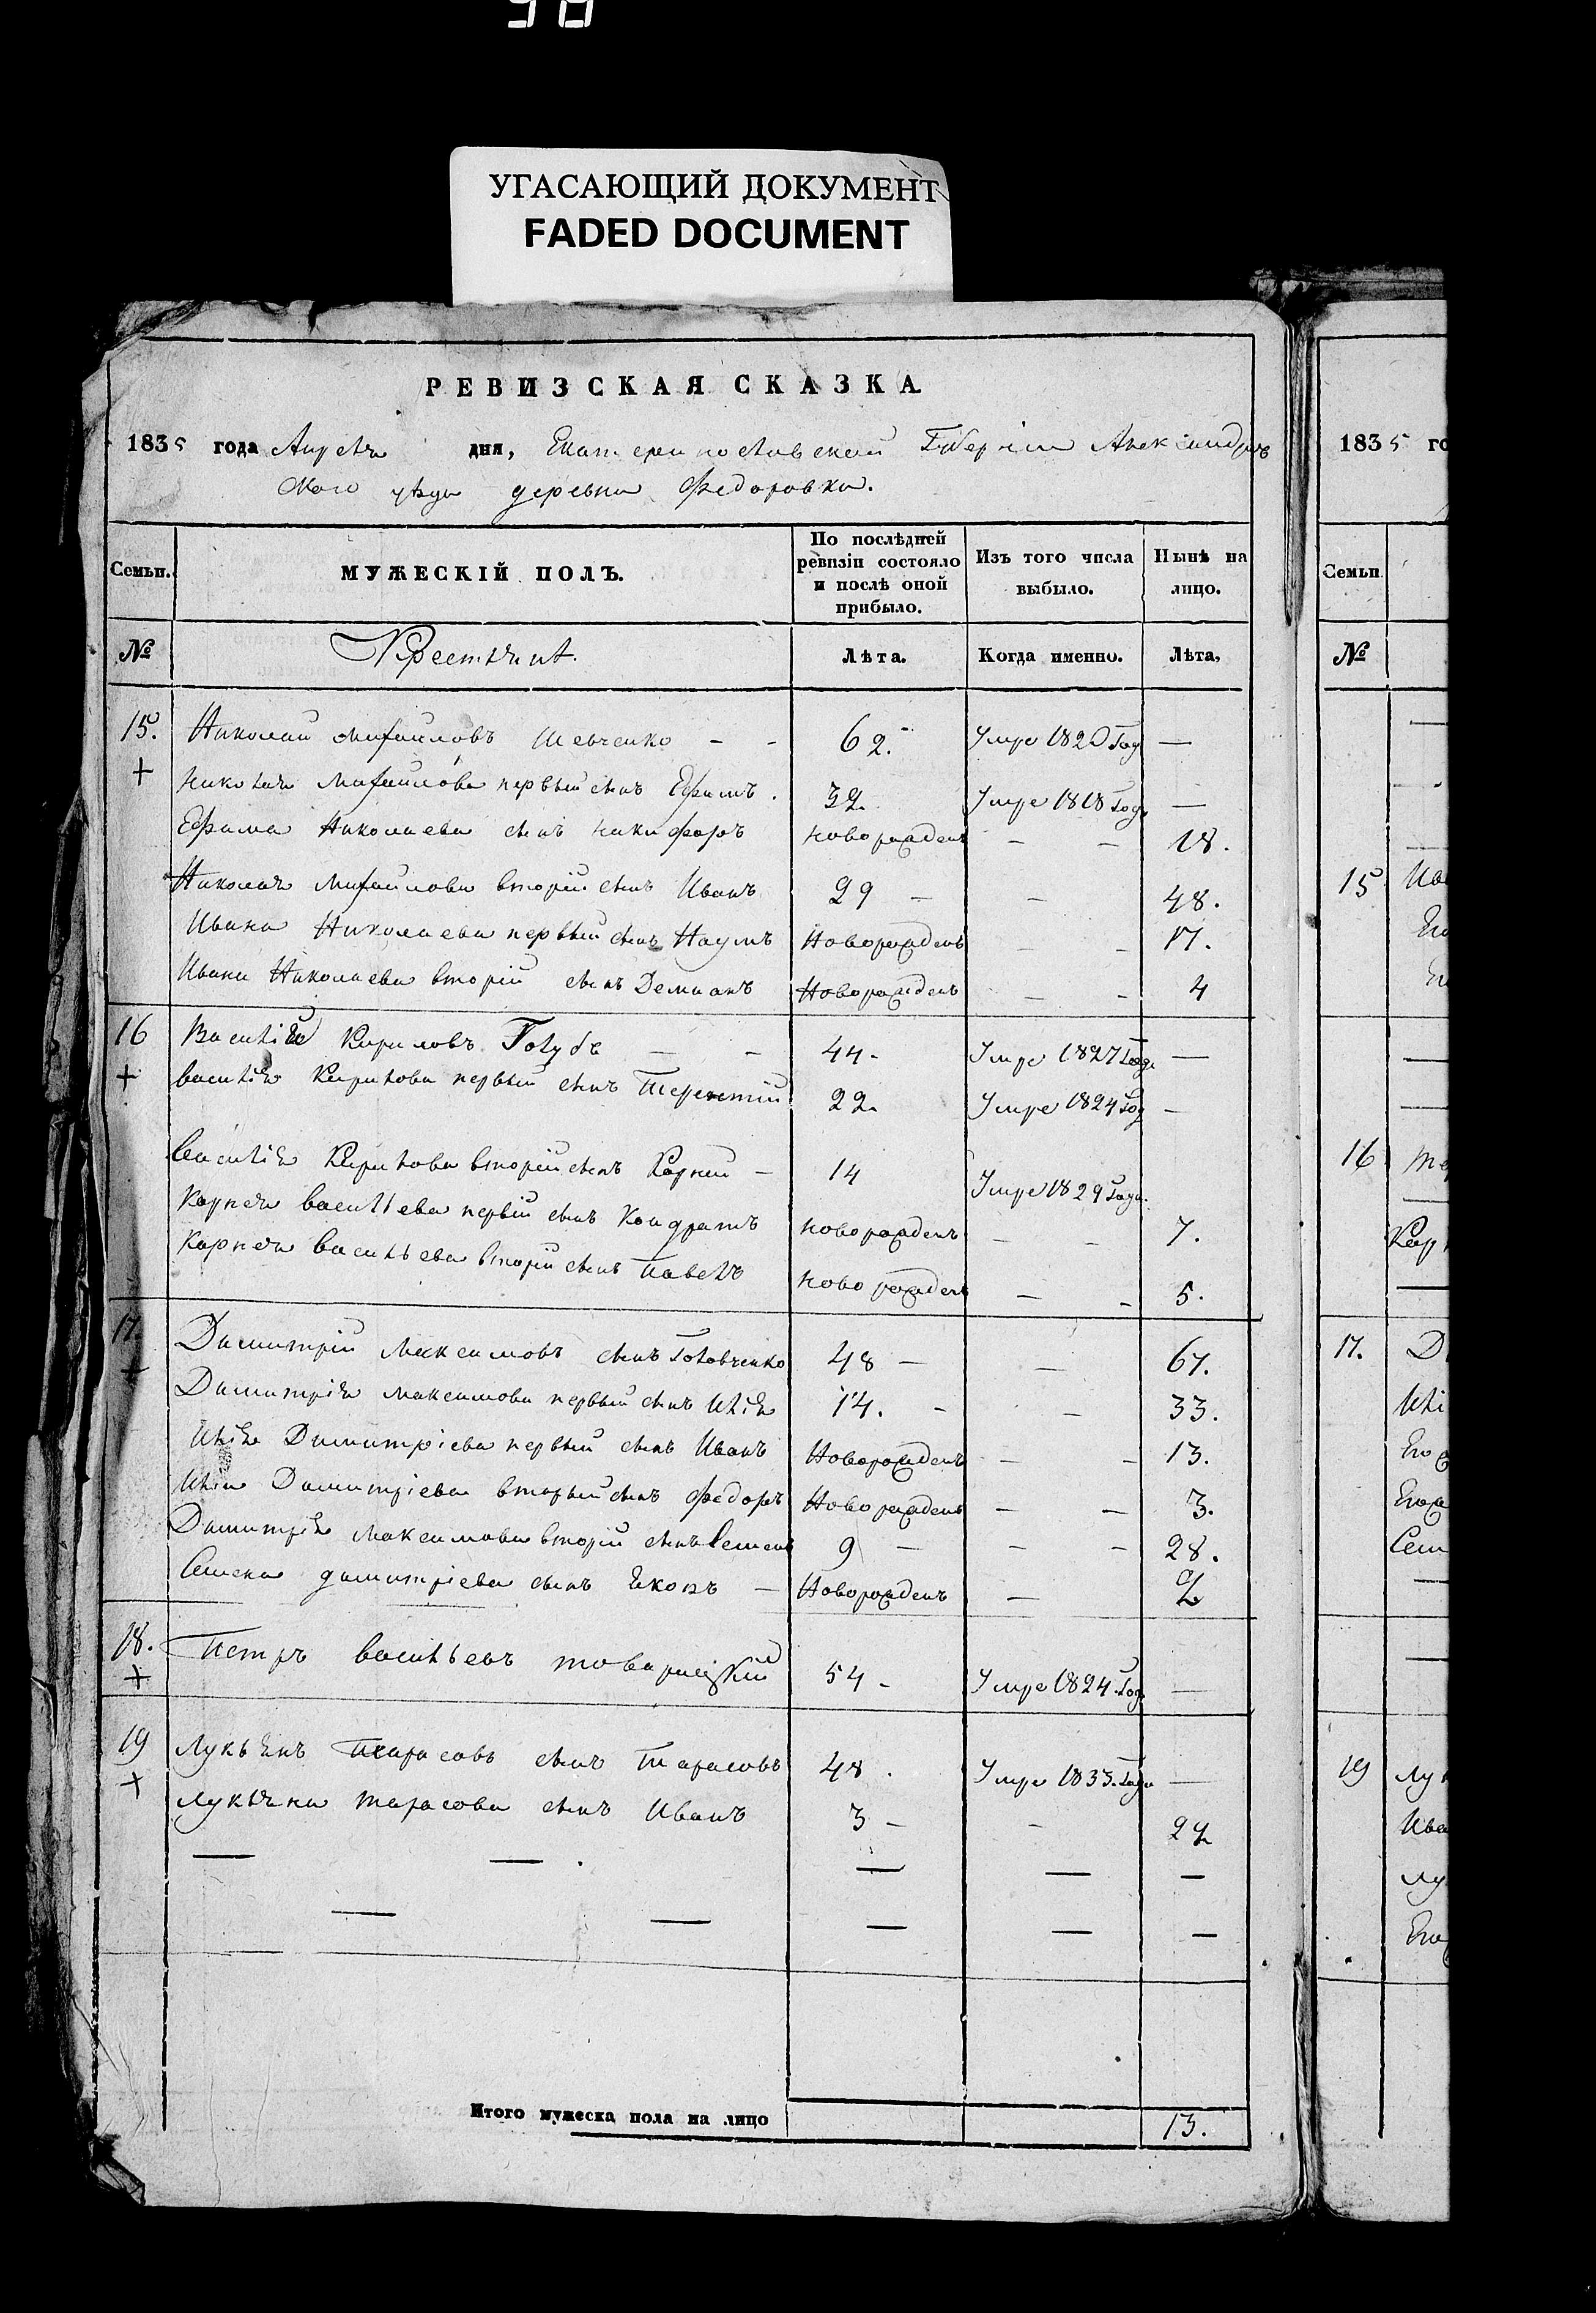 УГАСАЮЩИЙ ДОКУМЕНТ
FADED DOCUMENT
РЕВИЗСКАЯ СКАЗКА
1835 года Апреля дня, Екатеринославской Губерніи Александров
ского уѣзда деревни Федоровки.
Семьи. МУЖЕСКІЙ ПОЛЪ. По послѣдней ревизіи состояло и послѣ оной прибыло. Изъ того числа выбыло. Нынѣ на лицо.
№ Крестьяне. Лѣта. Когда именно. Лѣта,
15. Николай Михайловъ Шевченко — — 62. Умре 1820 Году —
+ Николая Михайлова первый сынъ Ефимъ. 32. Умре 1818 Году —
Ефима Николаева сынъ Никифоръ новорожденъ — — 18.
Николая Михайлова вторій сынъ Иванъ 29 — — 48.
Ивана Николаева первый сынъ Наумъ Новорожденъ — — 17.
Ивана Николаева вторій сынъ Демианъ Новорожденъ — — 4
16 Василій Кириловъ Голубъ — — 44 - Умре 1827 Года —
+ Василія Кирилова первый сынъ Терентій 22. Умре 1824 Год —
Василія Кирилова вторій сынъ Карпій — 14 Умре 1829 Года.
Карпея Васильева первій сынъ Кондратъ новорожденъ — — 7.
Карпея Васильева вторій сынъ Павелъ новорожденъ — — 5.
17. Димитрій Максимовъ сынъ Головченко 48 — — 67.
+ Димитрія Максимова первый сынъ Илія 14. — — 33.
Илія Димитріева первый сынъ Иванъ Новорожденъ — — 13.
Иліи Димитріева вторый сынъ Федоръ Новорожденъ — — 3.
Димитрія Максимова вторій сынъ Семенъ 9 — — — 28.
Семена Димитріева сынъ Яковъ — Новорожденъ — 2
18. Петръ Васильевъ
+ 54 - Умре 1824 Году —
19 Лукьянъ Тарасовъ сынъ Тарасовъ 48. Умре 1833 Года —
+ Лукьяна Тарасова сынъ Иванъ 3 — — 22
— — . — — —
— — — — —
Итого мужеска пола на лицо 13.
1835 го
Семьи
№
15 Ива
Его
16 Те
Кар
17. Д
Илі
Его
Его
Сем
19 Лук
Ива
Лу
Его